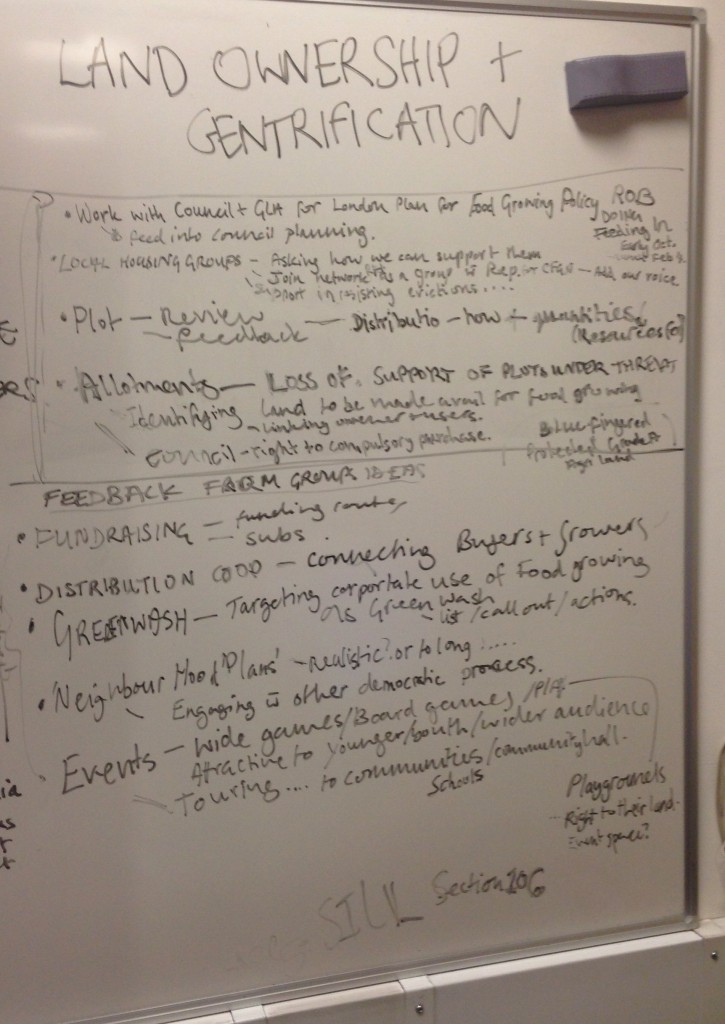 LAND OWNERSHIP +
GENTRIFICATION
• Work with Council + GLA for London Plan for Food Growing Policy ROB
feed into council planning.
DOING
Feeding In
Early Oct.
Feb
• LOCAL HOUSING GROUPS - Asking how we can support them
Join network as a group Rep. or - Add our voice
Support in resisting evictions....
• Plot - Review
- feedback - Distributio - how + quantities
(Resources
• Allotments - LOSS OF. SUPPORT OF PLOTS UNDER THREAT
Identifying land to be made avail for food growing
- including users.
council - right to compulsory purchase.
Blue fingered
Protected Grade A
Agri land
FEEDBACK FARM GROUPS IDEAS
• FUNDRAISING - funding routes
- subs.
• DISTRIBUTION COOP - connecting Buyers + Growers
• GREENWASH - Targeting corportate use of Food growing
as Green wash
- list / call out / actions.
• 'Neighbour Hood Plans' - realistic? or to long .....
Engaging other democratic process.
Events - wide games/Board games /PLAY
Attractive to younger/youth/wider audience
Touring .... to communities/community hall.
Schools
Playgrounds
Right to their land
Event space?
Section 106